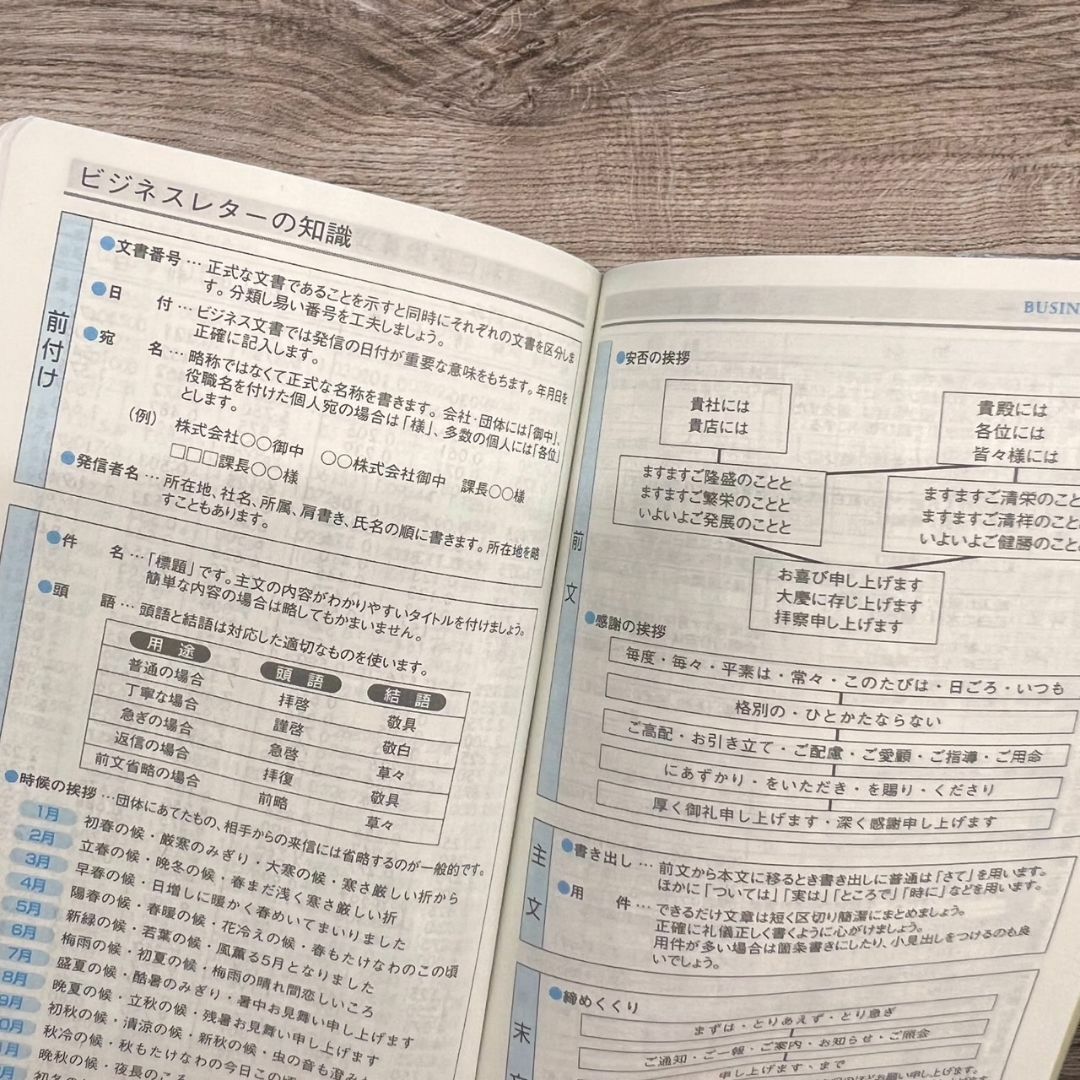 ビジネスレターの知識
前付け
●文書番号 … 正式な文書であることを示すと同時にそれぞれの文書を区分しま
す。分類し易い番号を工夫しましょう。
●日 付 … ビジネス文書では発信の日付が重要な意味をもちます。年月日を
正確に記入します。
●宛 名 … 略称ではなくて正式な名称を書きます。会社・団体には「御中」、
役職名を付けた個人宛の場合は「様」、多数の個人には「各位」
とします。
(例) 株式会社○○御中 ○○株式会社御中
□□□課長○○様 課長○○様
●発信者名 … 所在地、社名、所属、肩書き、氏名の順に書きます。所在地を略
すこともあります。
●件 名 … 「標題」です。主文の内容がわかりやすいタイトルを付けましょう。
簡単な内容の場合は略してもかまいません。
●頭 語 … 頭語と結語は対応した適切なものを使います。
用途 頭語 結語
普通の場合 拝啓 敬具
丁寧な場合 謹啓 敬白
急ぎの場合 急啓 草々
返信の場合 拝復 敬具
前文省略の場合 前略 草々
●時候の挨拶 … 団体にあてたもの、相手からの来信には省略するのが一般的です。
1月 初春の候・厳寒のみぎり・大寒の候・寒さ厳しい折から
2月 立春の候・晩冬の候・春まだ浅く寒さ厳しい折
3月 早春の候・日増しに暖かく春めいてまいりました
4月 陽春の候・春暖の候・花冷えの候・春もたけなわのこの頃
5月 新緑の候・若葉の候・風薫る5月となりました
6月 梅雨の候・初夏の候・梅雨の晴れ間恋しいころ
7月 盛夏の候・酷暑のみぎり・暑中お見舞い申し上げます
8月 晩夏の候・立秋の候・残暑お見舞い申し上げます
9月 初秋の候・清涼の候・新秋の候・虫の音も澄み
0月 秋冷の候・秋もたけなわの今日この頃
1月 晩秋の候・夜長のころ
BUSIN
前文
●安否の挨拶
貴社には
貴店には
貴殿には
各位には
皆々様には
ますますご隆盛のことと
ますますご繁栄のことと
いよいよご発展のことと
ますますご清栄のこと
ますますご清祥のこと
いよいよご健勝のこと
お喜び申し上げます
大慶に存じ上げます
拝察申し上げます
●感謝の挨拶
毎度・毎々・平素は・常々・このたびは・日ごろ・いつも
格別の・ひとかたならない
ご高配・お引き立て・ご配慮・ご愛顧・ご指導・ご用命
にあずかり・をいただき・を賜り・くださり
厚く御礼申し上げます・深く感謝申し上げます
主文
●書き出し … 前文から本文に移るとき書き出しに普通は「さて」を用います。
ほかに「ついては」「実は」「ところで」「時に」などを用います。
●用 件 … できるだけ文章は短く区切り簡潔にまとめましょう。
正確に礼儀正しく書くように心がけましょう。
用件が多い場合は箇条書きにしたり、小見出しをつけるのも良
いでしょう。
末
●締めくくり
まずは・とりあえず・とり急ぎ
ご通知・ご一報・ご案内・お知らせ・ご照会
申し上げます・まで